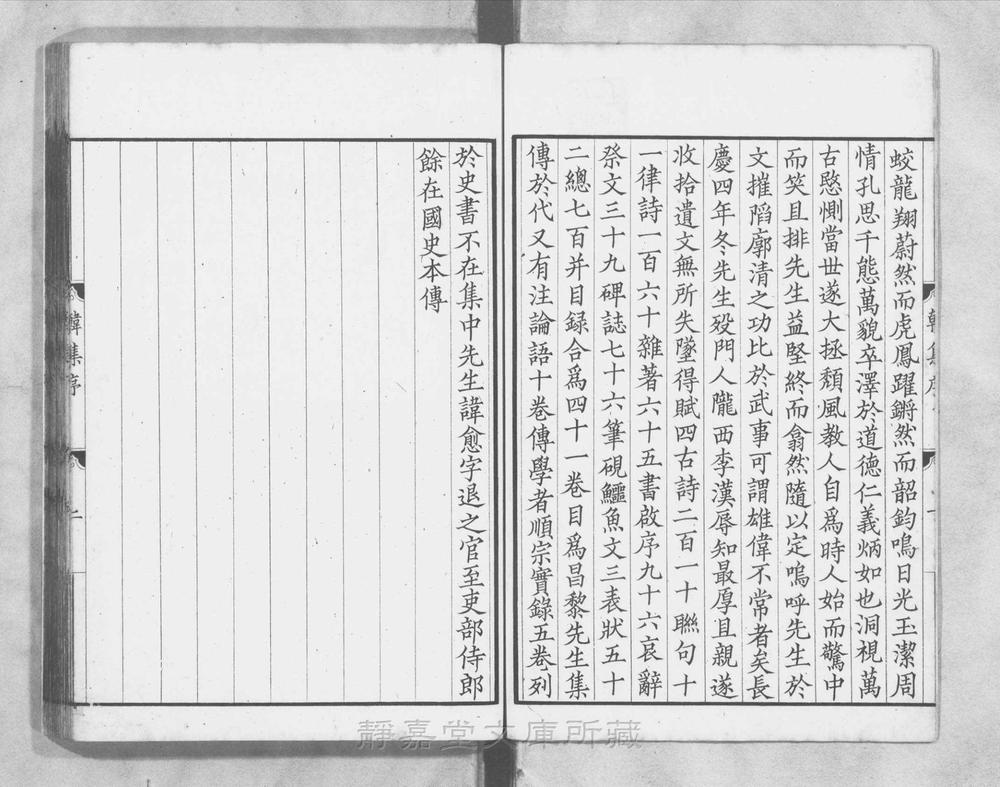 蛟龍翔蔚然而虎鳳躍鏘然而韶鈞鳴日光玉潔周
情孔思千態萬貌卒澤於道德仁義炳如也洞視萬
古愍惻當世遂大拯頹風教人自爲時人始而驚中
而笑且排先生益堅終而翕然隨以定嗚呼先生於
文摧陷廓清之功比於武事可謂雄偉不常者矣長
慶四年冬先生殁門人隴西李漢辱知最厚且親遂
收拾遺文無所失墜得賦四古詩二百一十聯句十
一律詩一百六十雜著六十五書啟序九十六哀辭
祭文三十九碑誌七十六筆硯鱷魚文三表狀五十
二總七百并目録合爲四十一卷目爲昌黎先生集
傳於代又有注論語十卷傳學者順宗實錄五卷列
於史書不在集中先生諱愈字退之官至吏部侍郎
餘在國史本傳
韓集序
二
靜嘉堂文庫所藏